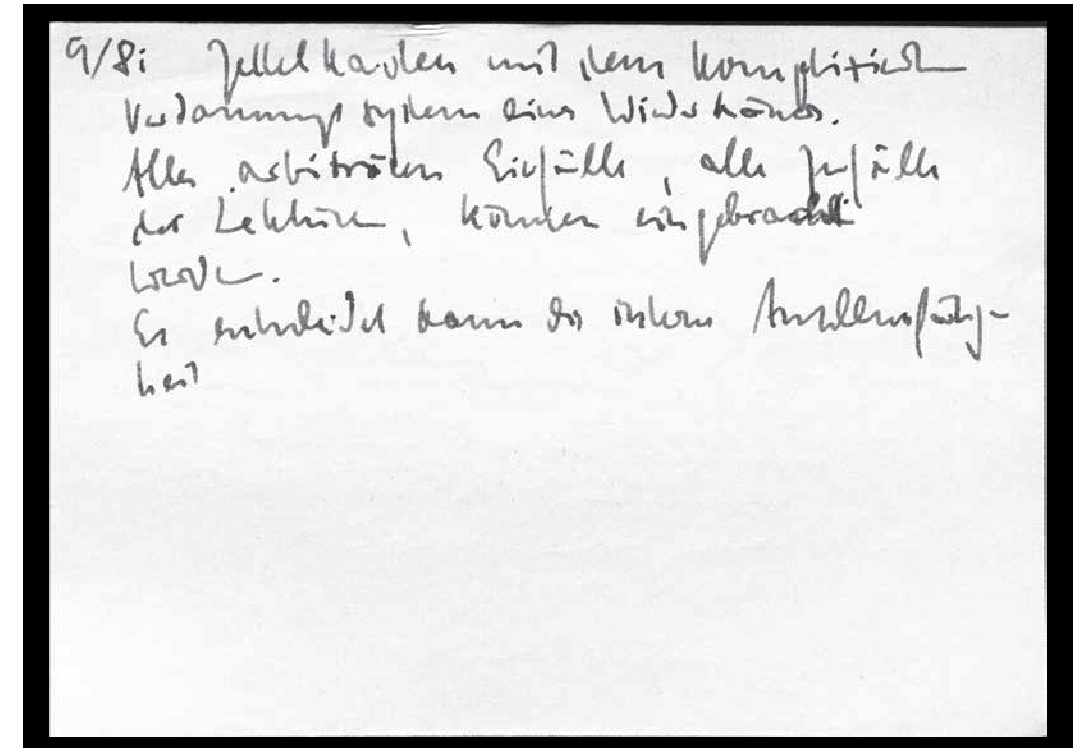 9/8i Zettelkasten mit dem komplizierten
Verdauungssystem eines Wiederkäuers.
Alle arbiträren Einfälle, alle Zufälle
der Lektüren, können eingebracht
werden.
Es entscheidet dann die interne Anschlussfähig-
keit